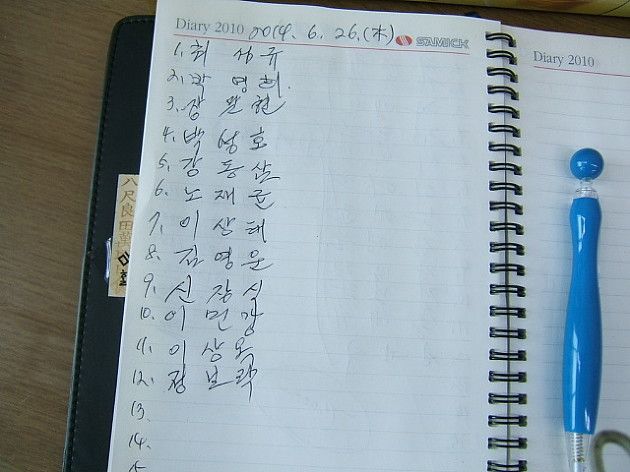 Diary 2010 2014. 6. 26. (木) SAMICK
1. 최 상 규
2. 박 영 희
3. 장 현
4. 박 상 호
5. 강 동 삼
6. 노 재 균
7. 이 상 태
8. 김 영 운
9. 신 장 식
10. 이 민 강
11. 이 상 옥
12. 정 보 락
13.
14.
15
Diary 2010
八尺良田萬